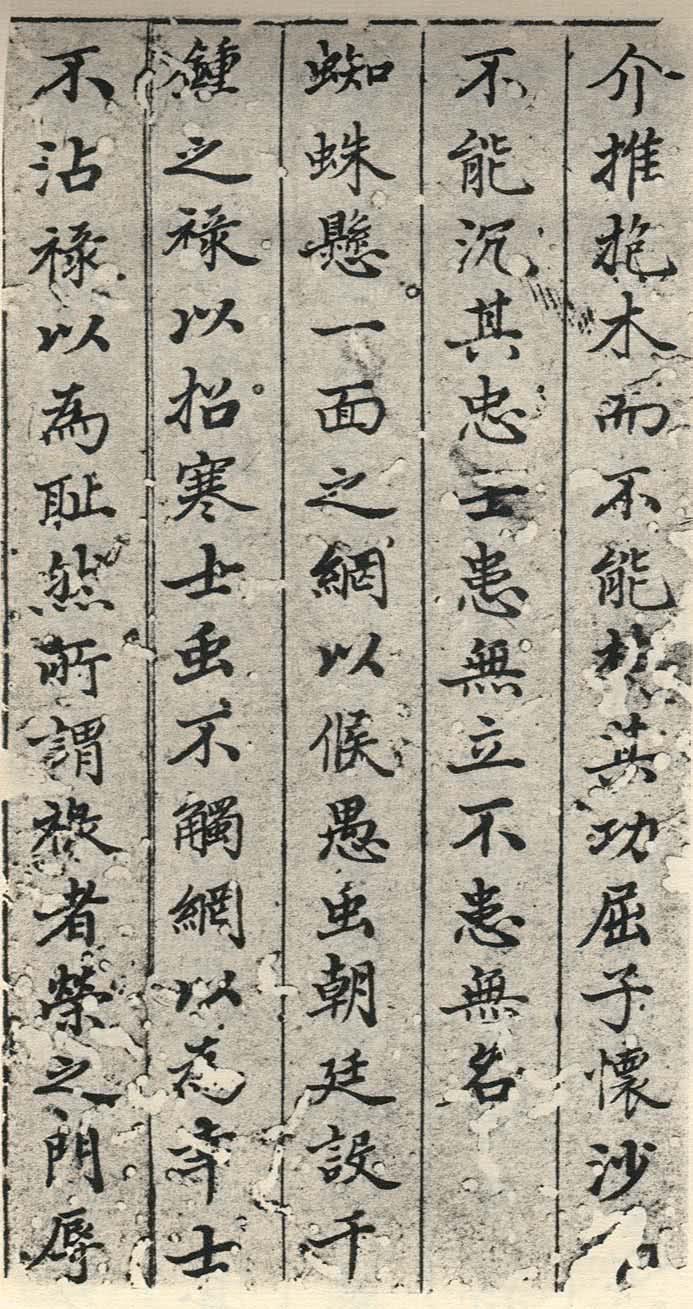 介推抱木而不能其功屈子懷沙
不能沉其忠士患無立不患無名
蜘蛛懸一面之網以候愚虫朝廷設千
鍾之禄以招寒士虫不觸網以為幸士
不沾禄以為耻然所謂禄者榮之門辱